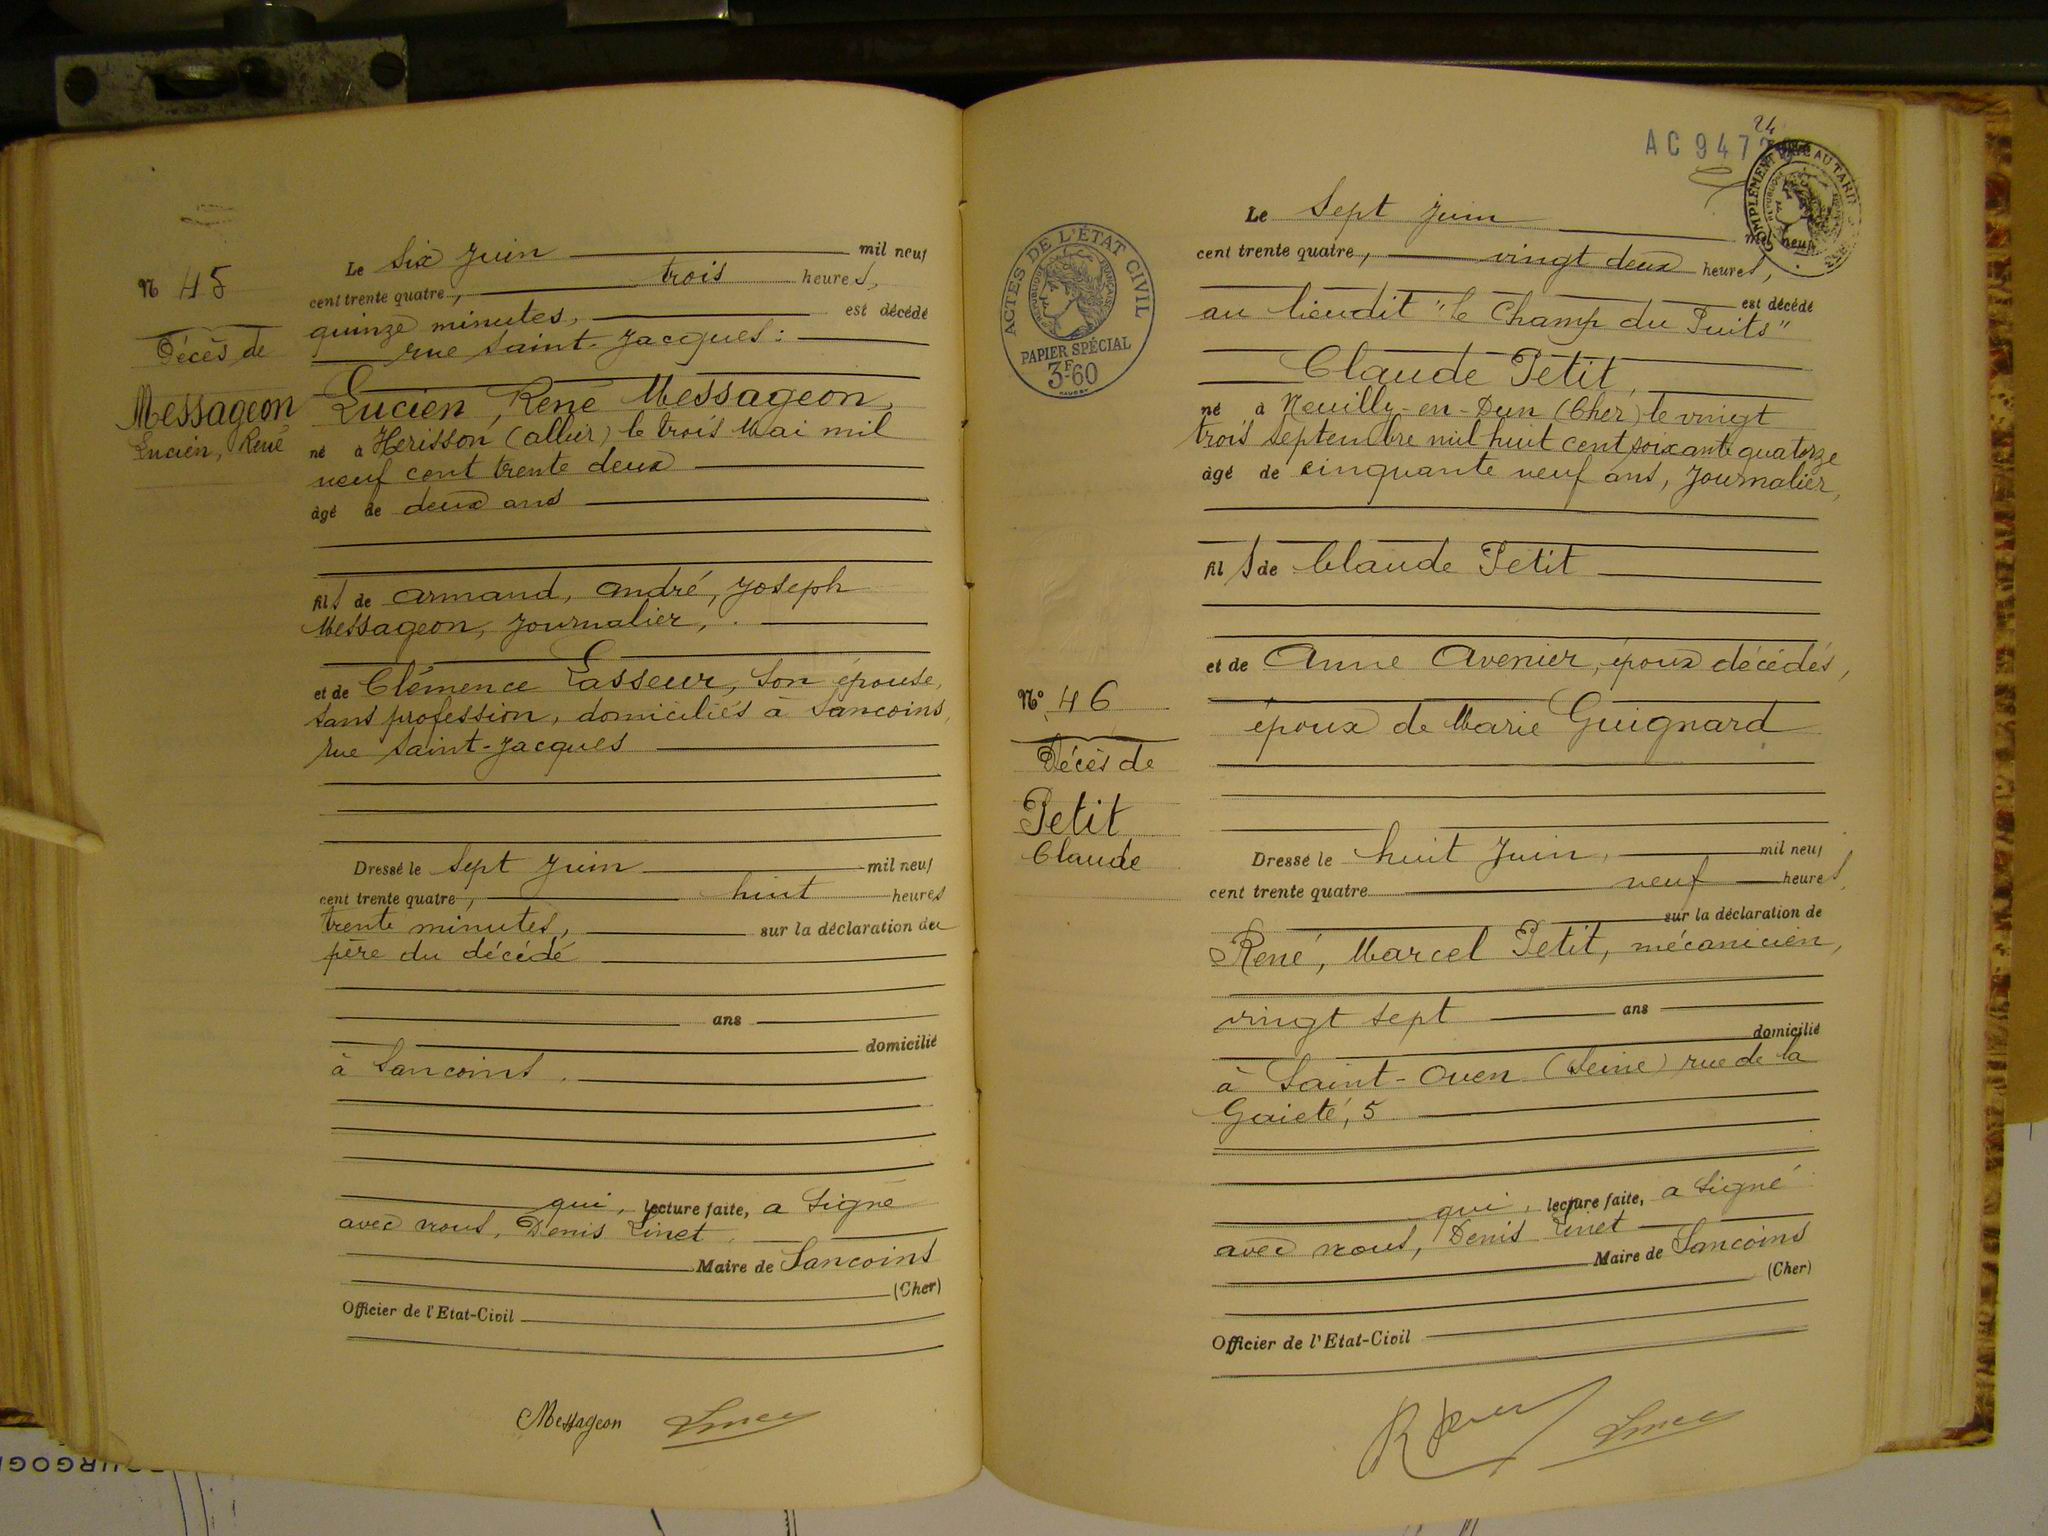 N 45
Décès de
Messageon
Lucien, René
Le six Juin mil neuf
cent trente quatre, trois heures,
quinze minutes, est décédé
rue Saint-Jacques :
Lucien, René Messageon,
né à Hérisson (allier) le trois Mai mil
neuf cent trente deux
âgé de deux ans
fils de Armand, André, Joseph
Messageon, Journalier,
et de Clémence Lasseur, son épouse,
sans profession, domiciliés à Sancoins,
rue Saint-Jacques
Dressé le sept Juin mil neuf
cent trente quatre, huit heures
trente minutes, sur la déclaration du
père du décédé
ans
domicilié
à Sancoins.
qui, lecture faite, a signé
avec nous, Denis Linet
Maire de Sancoins
(Cher)
Officier de l'Etat-Civil
Messageon
24
AC 947
COMPLÉMENT PAYÉ AU TARIF
ACTES DE L'ÉTAT CIVIL
RÉPUBLIQUE FRANÇAISE
PAPIER SPÉCIAL
3F60
N° 46
Décès de
Petit
Claude
Le sept Juin mil neuf
cent trente quatre, vingt deux heures,
est décédé
au lieudit "le Champ du Puits"
Claude Petit,
né à Neuilly-en-Dun (Cher) le vingt
trois septembre mil huit cent soixante quatorze
âgé de cinquante neuf ans, Journalier,
fils de Claude Petit
et de Anne Avenier, époux décédés,
époux de Marie Guignard
Dressé le huit Juin, mil neuf
cent trente quatre neuf heures,
sur la déclaration de
René, Marcel Petit, mécanicien,
vingt sept ans
domicilié
à Saint-Ouen (Seine) rue de la
Gaieté, 5
qui, lecture faite, a signé
avec nous, Denis Linet
Maire de Sancoins
(Cher)
Officier de l'Etat-Civil